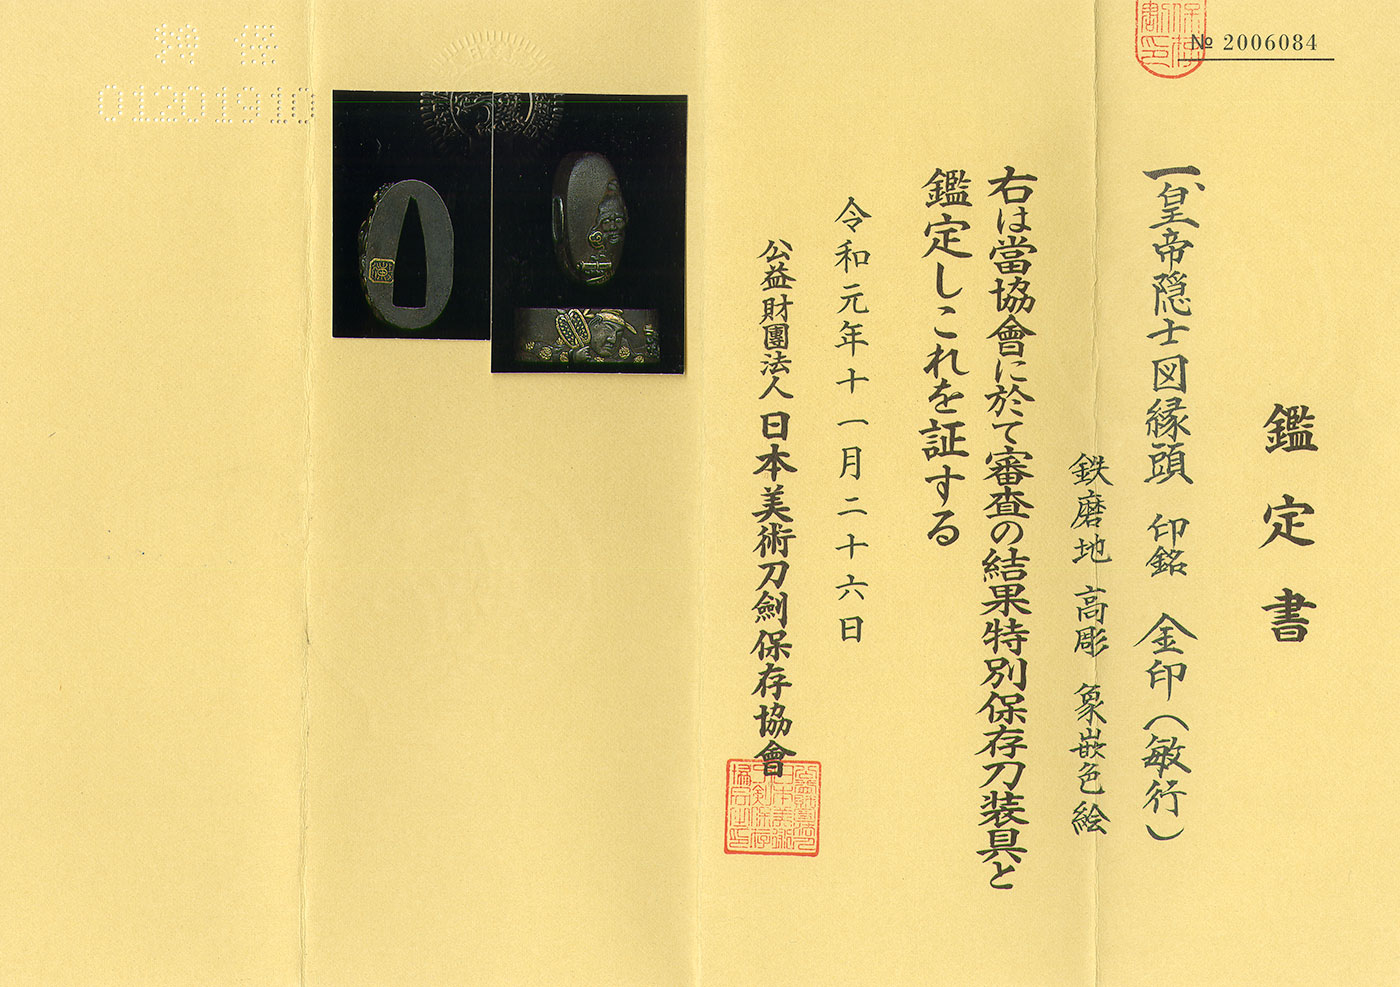 № 2006084
鑑定書
一、皇帝隠士図縁頭 印銘 金印(敏行)
鉄磨地 高彫 象嵌色絵
右は當協會に於て審査の結果特別保存刀装具と
鑑定しこれを証する
令和元年十一月二十六日
公益財團法人 日本美術刀劍保存協會
01201910